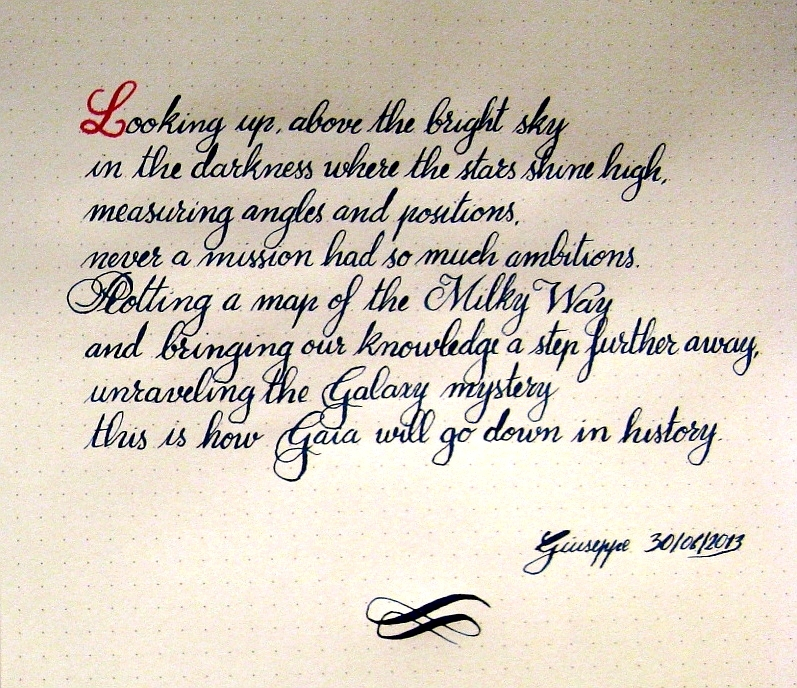 Looking up, above the bright sky
in the darkness where the stars shine high,
measuring angles and positions,
never a mission had so much ambitions.
Plotting a map of the Milky Way
and bringing our knowledge a step further away,
unraveling the Galaxy mystery
this is how Gaia will go down in history.
Giuseppe 30/06/2013